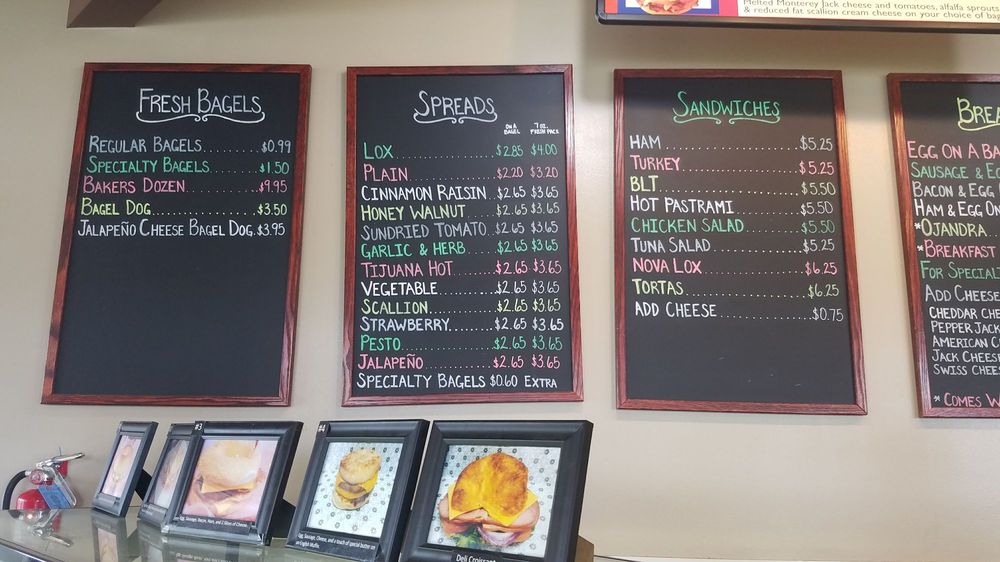 Melted Monterey Jack cheese and tomatoes, alfalfa sprouts
& reduced fat scallion cream cheese on your choice of bag
FRESH BAGELS
REGULAR BAGELS..........$0.99
SPECIALTY BAGELS..........$1.50
BAKERS DOZEN..........$9.95
BAGEL DOG..........$3.50
JALAPEÑO CHEESE BAGEL DOG.$3.95
SPREADS
ON A BAGEL 7 OZ. FRESH PACK
LOX..........$2.85 $4.00
PLAIN..........$2.20 $3.20
CINNAMON RAISIN..$2.65 $3.65
HONEY WALNUT.....$2.65 $3.65
SUNDRIED TOMATO..$2.65 $3.65
GARLIC & HERB.....$2.65 $3.65
TIJUANA HOT.......$2.65 $3.65
VEGETABLE.........$2.65 $3.65
SCALLION..........$2.65 $3.65
STRAWBERRY........$2.65 $3.65
PESTO.............$2.65 $3.65
JALAPEÑO..........$2.65 $3.65
SPECIALTY BAGELS $0.60 EXTRA
SANDWICHES
HAM..........$5.25
TURKEY..........$5.25
BLT..........$5.50
HOT PASTRAMI..........$5.50
CHICKEN SALAD..........$5.50
TUNA SALAD..........$5.25
NOVA LOX..........$6.25
TORTAS..........$6.25
ADD CHEESE..........$0.75
BREA
EGG ON A BA
SAUSAGE & EG
BACON & EGG
HAM & EGG ON
*OJANDRA..
*BREAKFAST
FOR SPECIAL
ADD CHEESE
CHEDDAR CHE
PEPPER JACK
AMERICAN C
JACK CHEES
SWISS CHEE
* COMES W
#3
Egg, Sausage, Bacon, Ham, and 2 Slices of Cheese
#4
Egg, Sausage, Cheese, and a touch of special butter
on English Muffin
Deli Croissant